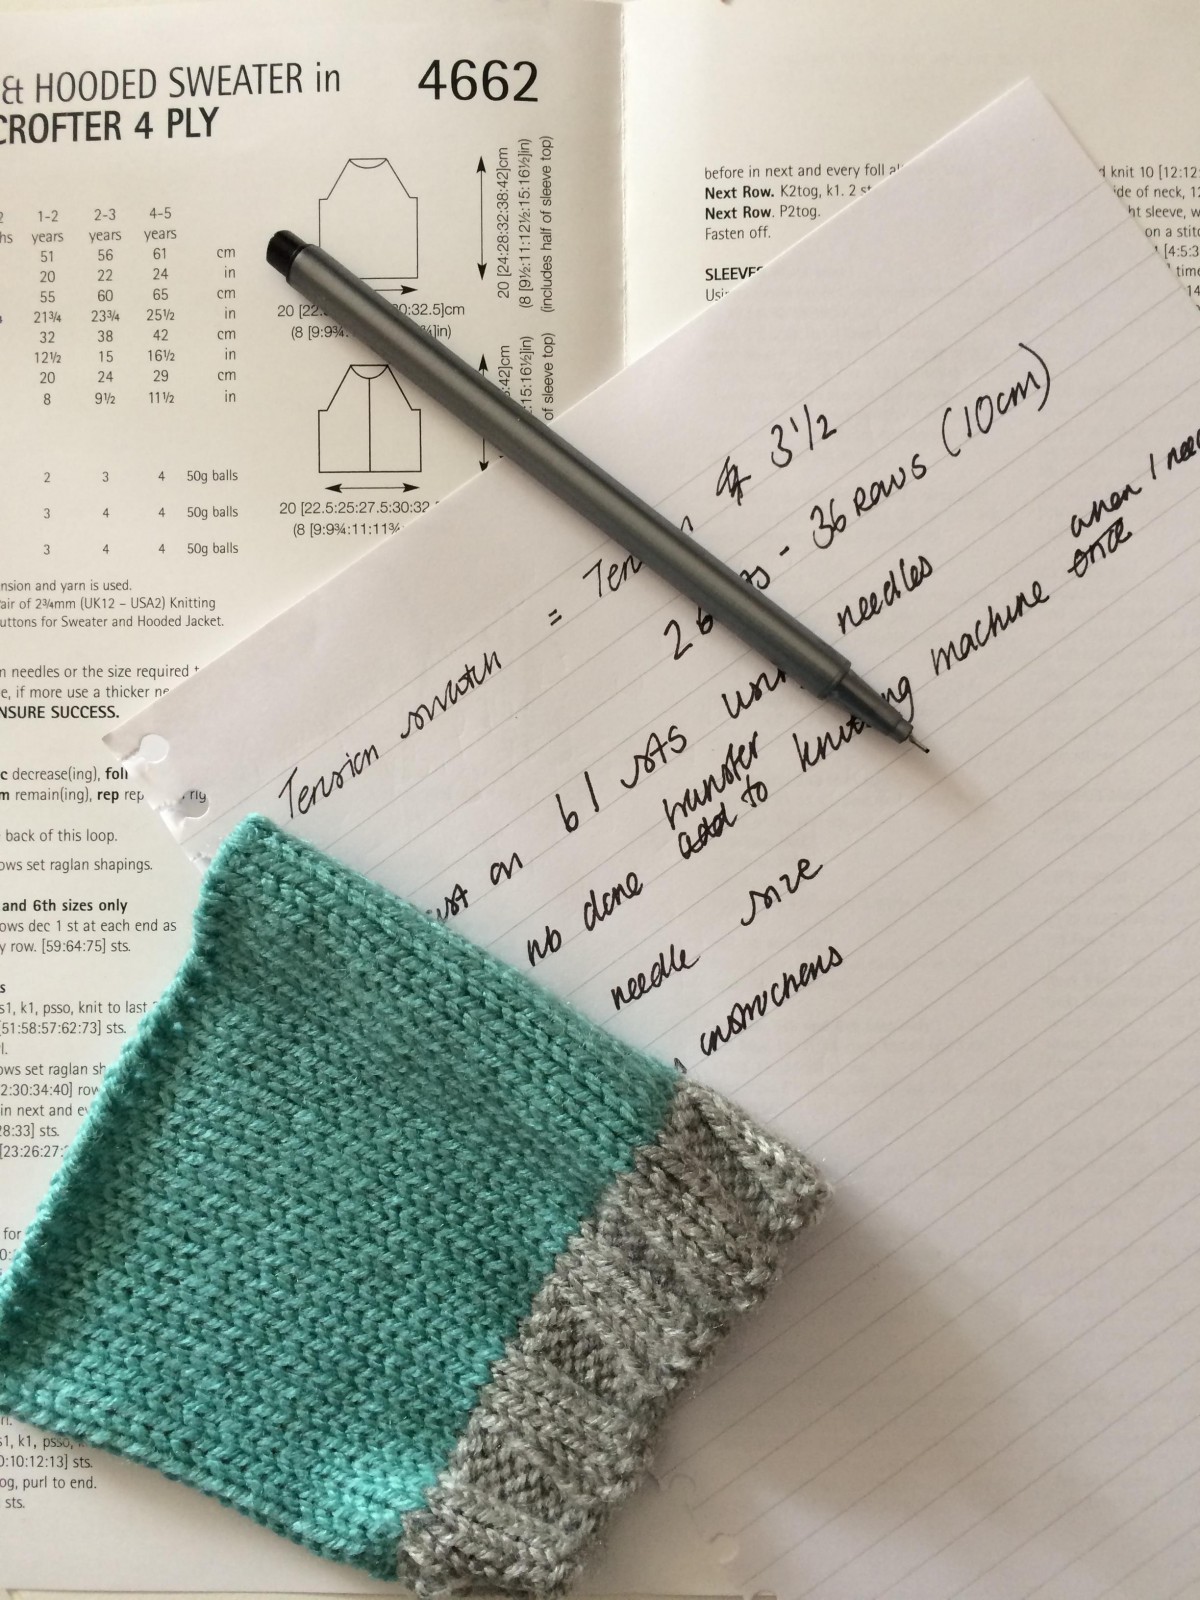 & HOODED SWEATER in
CROFTER 4 PLY
4662
1-2 2-3 4-5
years years years
51 56 61 cm
20 22 24 in
55 60 65 cm
21¾ 23¾ 25½ in
32 38 42 cm
12½ 15 16½ in
20 24 29 cm
8 9½ 11½ in
2 3 4 50g balls
3 4 4 50g balls
3 4 4 50g balls
20 [24:28:32:38:42]cm
(8 [9½:11:12½:15:16½]in)
(includes half of sleeve top)
20 [22. 0:32.5]cm
(8 [9:9¾: ¾]in)
:42]cm
:15:16½]in)
of sleeve top)
20 [22.5:25:27.5:30:32.
(8 [9:9¾:11:11¾
nsion and yarn is used.
air of 2¾mm (UK12 – USA2) Knitting
uttons for Sweater and Hooded Jacket.
n needles or the size required
e, if more use a thicker ne
NSURE SUCCESS.
c decrease(ing), foll
m remain(ing), rep rep rig
back of this loop.
ows set raglan shapings.
and 6th sizes only
ows dec 1 st at each end as
y row. [59:64:75] sts.
s1, k1, psso, knit to last
[51:58:57:62:73] sts.
ows set raglan sh
2:30:34:40] row
in next and ev
28:33] sts.
[23:26:27:
for
s1, k1, psso,
0:10:12:13] sts.
og, purl to end.
sts.
before in next and every foll
Next Row. K2tog, k1. 2 st
Next Row. P2tog.
Fasten off.
SLEEVES
knit 10 [12:12:
ide of neck, 12
ht sleeve, w
on a stitc
[4:5:3
time
14
Tension swatch = Ten 3½
26 sts - 36 rows (10cm)
61 sts using needles
nb done transfer add to knitting machine once when I need
needle size
instructions